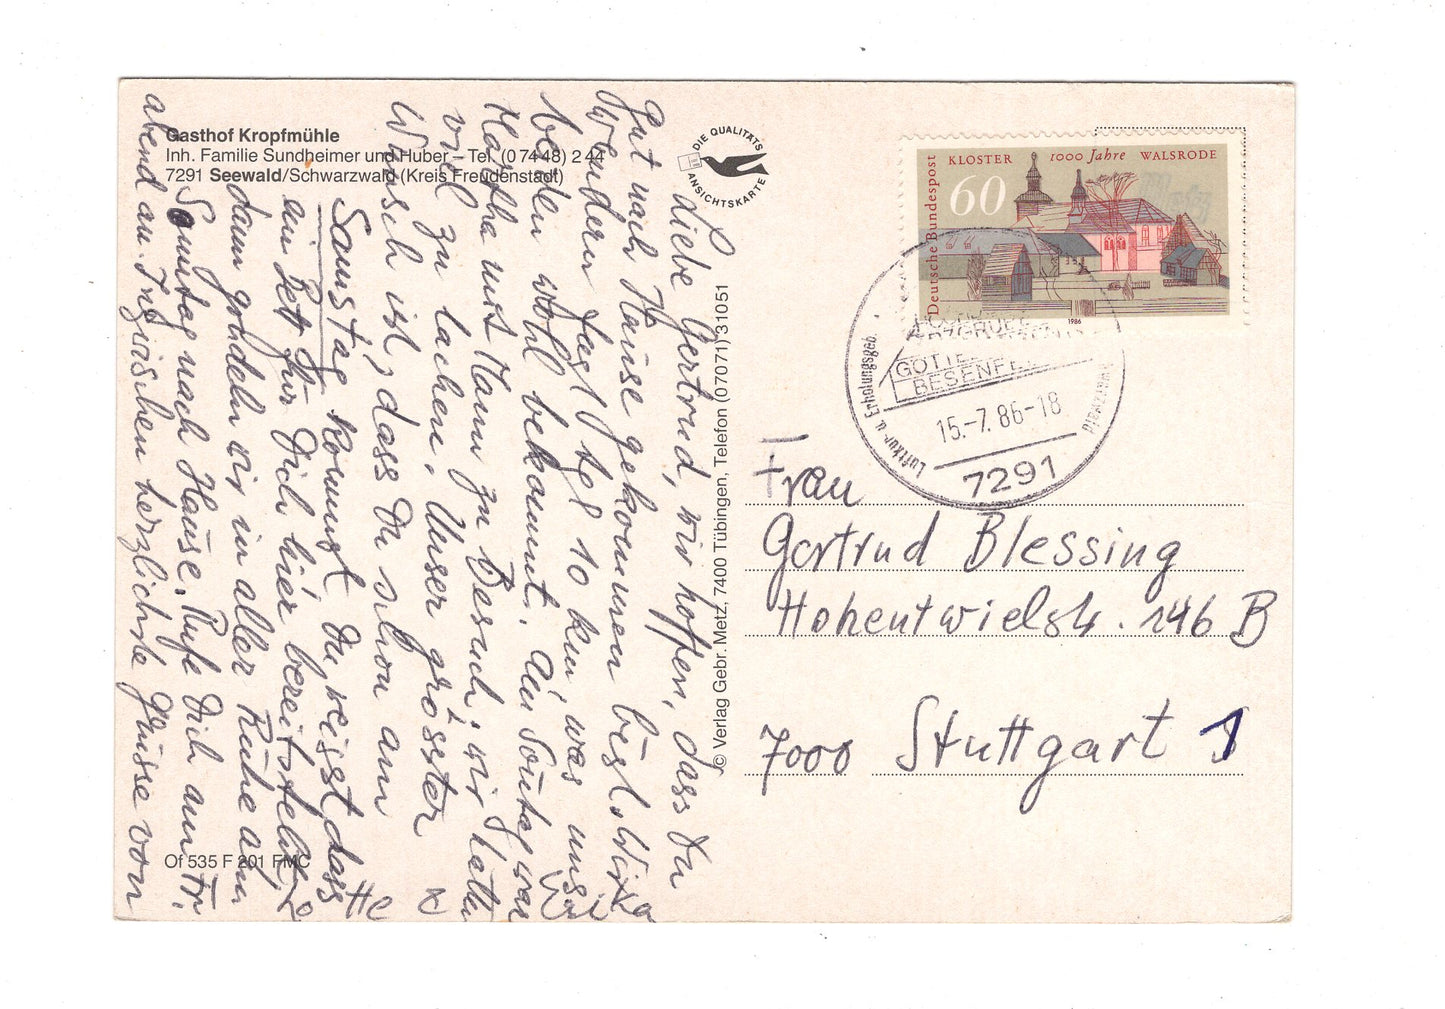 Gasthof Kropfmühle
Inh. Familie Sundheimer und Huber – Tel. (0 74 48) 2 44
7291 Seewald/Schwarzwald (Kreis Freudenstadt)
DIE QUALITÄTS
ANSICHTSKARTE
Liebe Gertrud, wir hoffen, dass Du
gut nach Hause gekommen bist. Wir
wandern fast tgl 10 km, was uns
beiden wohl bekommt. Am Sonntag war
Martha mit Mann zu Besuch, wir hatten
viel zu lachen. Unser grösster
Wunsch ist, dass Du schon am
Samstag kommst, Du weisst dass
ein Bett für Dich hier bereitsteht,
dann gondeln wir in aller Ruhe am
Sonntag nach Hause. Rufe Dich am
abend an. Inzwischen herzlichste Grüsse von
Of 535 F 201 FMC
© Verlag Gebr. Metz, 7400 Tübingen, Telefon (07071) 31051
KLOSTER 1000 Jahre WALSRODE
60
Deutsche Bundespost
1986
BESENFE
15.-7.86-18
Luftkur- u. Erholungsgeb.
7291
Frau
Gertrud Blessing
Hohentwielstr. 146 B
7000 Stuttgart 1